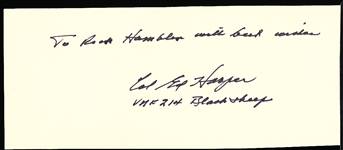 To Rock Hambler with best wishes
Col Ed Harper
VMF 214 Black sheep